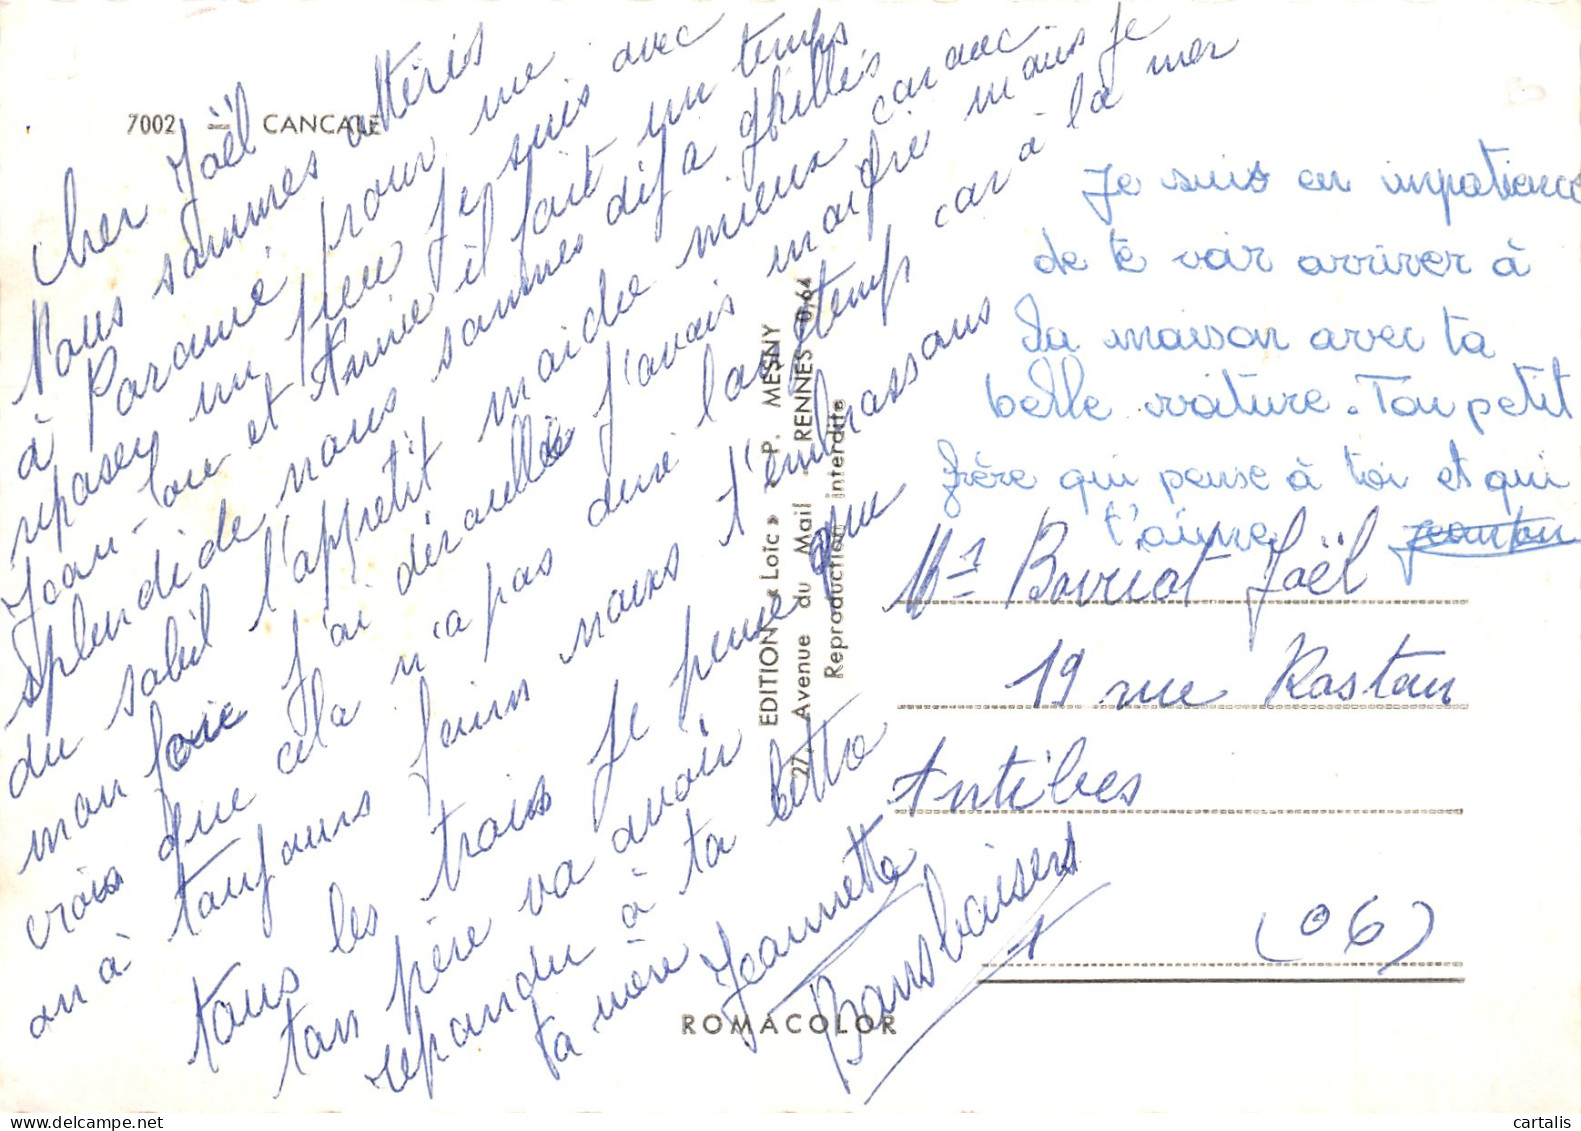 7002 — CANCALE
Cher Joël
Nous sommes attéris
à Paramé pour me
reposer un peu je suis avec
Jean-Lou et Annie il fait un temps
splendide nous sommes déjà grillés
du soleil l'appetit maidre mieux car avec
mon foie j'ai déraullée j'avais maigré mais je
crois que cela n'a pas duré longtemp car à la mer
on à toujours faim nous t'embrassons
tous les trois je pense que
ton père va avoir
repondu à ta lettre
ta mère Jeannette
Bons baisers
EDITION « Loïc » - P. MESNY
27, Avenue du Mail - RENNES 0,64
Reproduction interdite
ROMACOLOR
Je suis en impatience
de te voir arriver à
la maison avec ta
belle voiture. Ton petit
frère qui pense à toi et qui
t'aime
Mr Bovriot Joël
19 rue Rostan
Antibes
(06)
cartalis